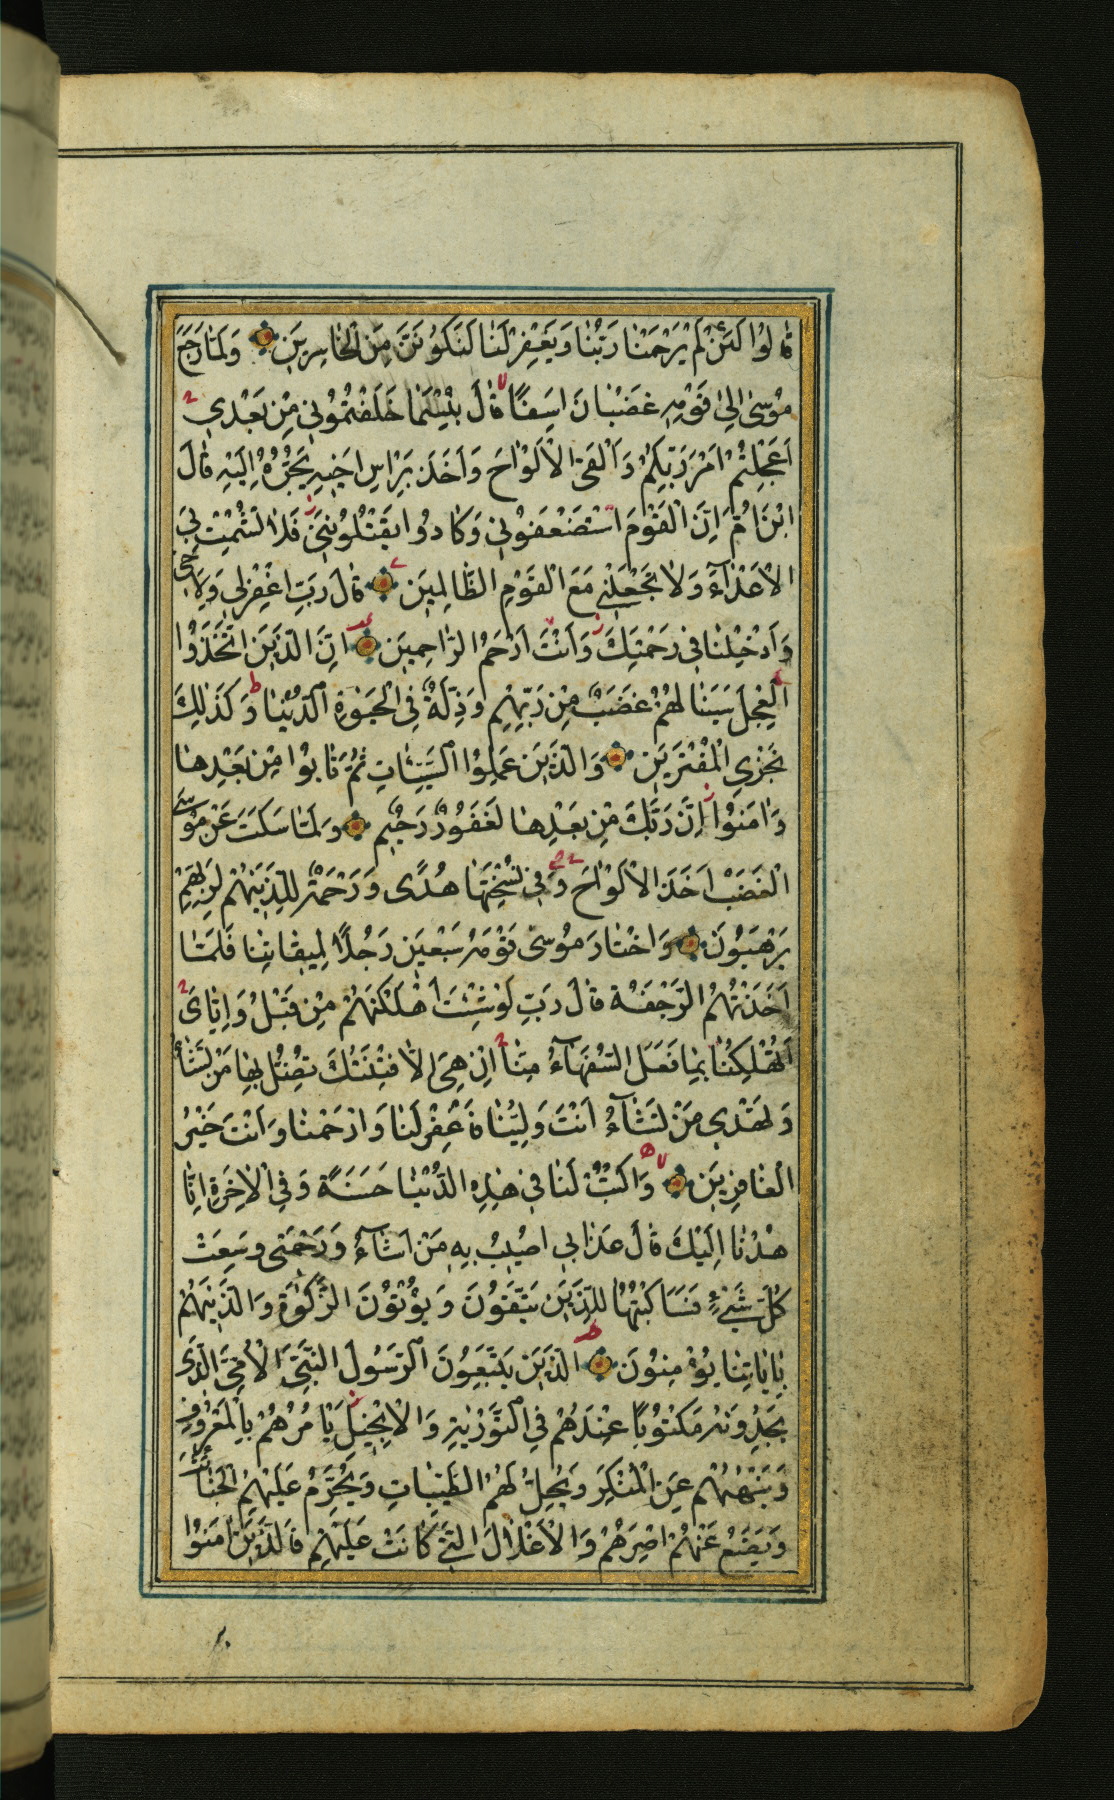 قالُوا لَئِنْ لَمْ يَرْحَمْنا رَبُّنا وَيَغْفِرْ لَنا لَنَكُونَنَّ مِنَ الْخاسِرِينَ وَلَمّا رَجَعَ
مُوسىٰ اِلىٰ قَوْمِهِ غَضْبانَ اَسِفًا قالَ بِئْسَمَا خَلَفْتُمُونِي مِنْ بَعْدِي
اَعَجِلْتُمْ اَمْرَ رَبِّكُمْ وَاَلْقَى الْاَلْواحَ وَاَخَذَ بِرَاْسِ اَخِيهِ يَجُرُّهُ اِلَيْهِ قالَ
ابْنَ اُمَّ اِنَّ الْقَوْمَ اسْتَضْعَفُونِي وَكادُوا يَقْتُلُونَنِي فَلا تُشْمِتْ بِيَ
الْاَعْدآءَ وَلا تَجْعَلْنِي مَعَ الْقَوْمِ الظّالِمِينَ قالَ رَبِّ اغْفِرْ لِي وَلِاَخِي
وَاَدْخِلْنا فِي رَحْمَتِكَ وَاَنْتَ اَرْحَمُ الرّاحِمِينَ اِنَّ الَّذِينَ اتَّخَذُوا
الْعِجْلَ سَيَنالُهُمْ غَضَبٌ مِنْ رَبِّهِمْ وَذِلَّةٌ فِي الْحَيٰوةِ الدُّنْيا وَكَذٰلِكَ
نَجْزِي الْمُفْتَرِينَ وَالَّذِينَ عَمِلُوا السَّيِّئاتِ ثُمَّ تابُوا مِنْ بَعْدِها
وَاٰمَنُوا اِنَّ رَبَّكَ مِنْ بَعْدِها لَغَفُورٌ رَحِيمٌ وَلَمّا سَكَتَ عَنْ مُوسَى
الْغَضَبُ اَخَذَ الْاَلْواحَ وَفِي نُسْخَتِها هُدًى وَرَحْمَةٌ لِلَّذِينَ هُمْ لِرَبِّهِمْ
يَرْهَبُونَ وَاخْتارَ مُوسىٰ قَوْمَهُ سَبْعِينَ رَجُلًا لِمِيقاتِنا فَلَمّا
اَخَذَتْهُمُ الرَّجْفَةُ قالَ رَبِّ لَوْ شِئْتَ اَهْلَكْتَهُمْ مِنْ قَبْلُ وَاِيّايَ
اَتُهْلِكُنا بِما فَعَلَ السُّفَهآءُ مِنّا اِنْ هِيَ اِلّا فِتْنَتُكَ تُضِلُّ بِها مَنْ تَشآءُ
وَتَهْدِي مَنْ تَشآءُ اَنْتَ وَلِيُّنا فَاغْفِرْ لَنا وَارْحَمْنا وَاَنْتَ خَيْرُ
الْغافِرِينَ وَاكْتُبْ لَنا فِي هٰذِهِ الدُّنْيا حَسَنَةً وَفِي الْاٰخِرَةِ اِنّا
هُدْنا اِلَيْكَ قالَ عَذابِي اُصِيبُ بِهِ مَنْ اَشآءُ وَرَحْمَتِي وَسِعَتْ
كُلَّ شَيْءٍ فَسَاَكْتُبُها لِلَّذِينَ يَتَّقُونَ وَيُؤْتُونَ الزَّكٰوةَ وَالَّذِينَ هُمْ
بِاٰياتِنا يُؤْمِنُونَ الَّذِينَ يَتَّبِعُونَ الرَّسُولَ النَّبِيَّ الْاُمِّيَّ الَّذِي
يَجِدُونَهُ مَكْتُوبًا عِنْدَهُمْ فِي التَّوْرٰيةِ وَالْاِنْجِيلِ يَاْمُرُهُمْ بِالْمَعْرُوفِ
وَيَنْهٰهُمْ عَنِ الْمُنْكَرِ وَيُحِلُّ لَهُمُ الطَّيِّباتِ وَيُحَرِّمُ عَلَيْهِمُ الْخَبآئِثَ
وَيَضَعُ عَنْهُمْ اِصْرَهُمْ وَالْاَغْلالَ الَّتِي كانَتْ عَلَيْهِمْ فَالَّذِينَ اٰمَنُوا